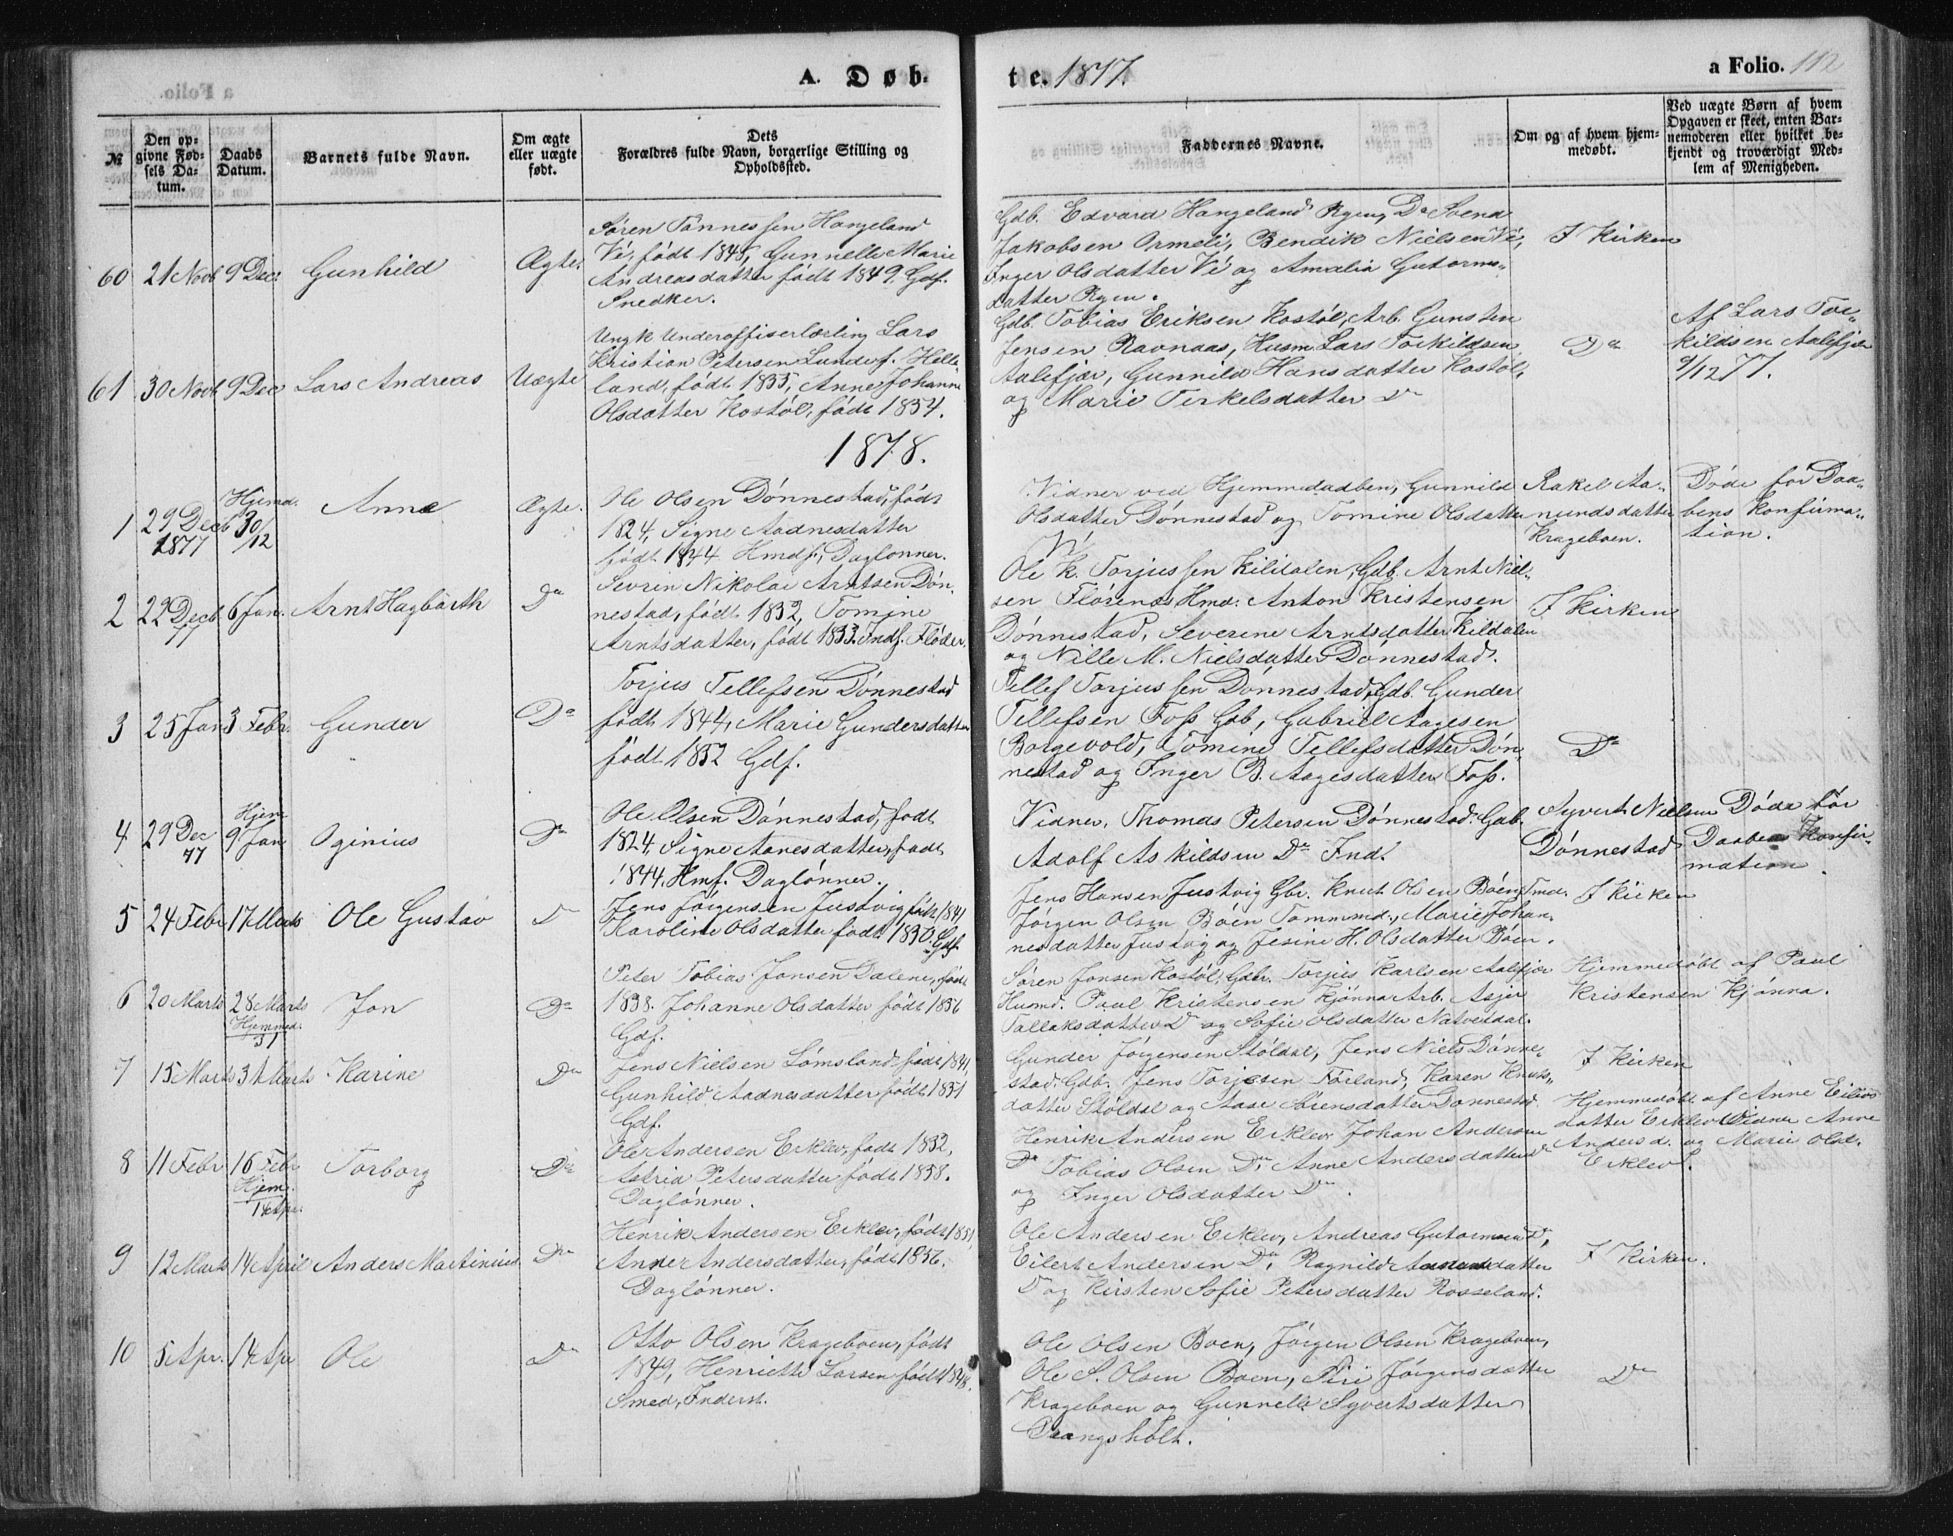 A. Døb-
te. 1877.
a Folio. 112
№
Den op-
givne Fød-
sels Da-
tum.
Daabs
Datum.
Barnets fulde Navn.
Om ægte
eller uægte
født.
Dets
Forældres fulde Navn, borgerlige Stilling og
Opholdssted.
Faddernes Navne.
Om og af hvem hjem-
medøbt.
Ved uægte Børn af hvem
Opgaven er skeet, enten Bar-
nemoderen eller hvilket be-
kjendt og troværdigt Med-
lem af Menigheden.
60 21 Novb 9 Dec. Gunhild Ægte.
Søren Tønnessen Hangeland
Vé, født 1848, Gunnelle Marie
Andreasdatter født 1849. Gdf.
Snedker.
Gdb. Edvard Hangeland Rygen, Do Svend
Jakobsen Ormeli, Bendik Nielsen Vé,
Inger Olsdatter Vé og Amalia Gutorms-
datter Rygen.
I Kirken
61 30 Novb 9 Dec Lars Andreas Uægte
Ungk Underoffiserlærling Lars
Kristian Petersen Lundev. Helle-
land, født 1855, Anne Johanne
Olsdatter Kostøl, født 1854.
Gdb. Tobias Eriksen Kostøl, Arb. Gunsten
Jensen Ravnaas, Husm. Lars Torkildsen
Aalefjær, Gunnild Hansdatter Kostøl,
og Marie Terkelsdatter Do
Do
Af Lars Tor-
kildsen Aalefjær
9/12 77.
1878.
1 29 Decb 1877 Hjemd. 30/12 Anne Ægte.
Ole Olsen Dønnestad, født
1824, Signe Aadnesdatter
født 1844 Hmdf. Daglønner.
Vidner ved Hjemmedaaben, Gunnild
Olsdatter Dønnestad og Tomine Olsdatter
Rakel Aa-
nundsdatter
Krageboen.
Døde før Daa-
bens Konfirma-
tion.
2 22 Decb 77 6 Jan. Arnt Hagbarth Do
Severin Nikolai Arntsen Døn-
nestad, født 1832, Tomine
Arntsdatter, født 1833. Indf. Fløder.
Ole K. Torjussen Kildalen, Gdb. Arnt Niel-
sen Florenes Hmd. Anton Kristensen
Dønnestad, Severine Arntsdatter Kildalen
og Nille M. Nielsdatter Dønnestad.
I Kirken
3 25 Jan 3 Febr. Gunder Do
Torjus Tellefsen Dønnestad
født 1844, Marie Gundersdatter
født 1852 Gdf.
Tellef Torjussen Dønnestad, Gdb. Gunder
Tellefsen Foss Gdb, Gabriel Aagesen
Borgevold, Tomine Tellefsdatter Døn-
nestad og Inger B. Aagesdatter Foss.
Do
4 29 Dec 77 Hjem 9 Jan Oginius Do
Ole Olsen Dønnestad, født
1824 Signe Aanesdatter, født
1844. Hmf. Daglønner.
Vidner. Thomas Petersen Dønnestad. Gdb.
Adolf Askildsen Do Ind.
Syvert Nielsen
Dønnestad
Døde før
Daabens Konfir-
mation.
5 24 Febr 17 Marts Ole Gustav Do
Jens Jørgensen Justvig født 1841
Karoline Olsdatter født 1830. Gdf.
Jens Hansen Justvig Gbr. Knut Olsen Boen Tmd.
Jørgen Olsen Boen Tømmmd., Marie Johan-
nesdatter Justvig og Jesine H. Olsdatter Boen.
I Kirken
6 20 Marts 28 Marts Hjemmed. 31 Jon Do
Peter Tobias Jonsen Dalene, født
1838. Johanne Olsdatter født 1836
Gdf.
Søren Jonsen Kostøl, Gdbr. Torjus Karlsen Aalefjær
Husmd. Paul Kristensen Kjønna Arb. Asjer
Tallaksdatter Do og Sofie Olsdatter Natvesdal.
Hjemmedøbt af Paul
Kristensen Kjønna.
7 15 Marts 31 Marts Karine Do
Jens Nielsen Lømsland født 1841,
Gunhild Aadnesdatter født 1851
Gdf.
Gunder Jørgensen Støldal, Jens Niels Dønne-
stad Gdb. Jens Torjesen Førland, Karen Knuts-
datter Støldal og Aase Sørensdatter Dønnestad
I Kirken
8 11 Febr 16 Febr Hjem. 14 Apr. Torborg Do
Ole Andersen Erklev, født 1832,
Astrid Petersdatter født 1838.
Daglønner.
Henrik Andersen Erklev Johan Andersen
Do Tobias Olsen Do, Anne Andersdatter Do
og Inger Olsdatter Do.
Hjemmedøbt af Anne Eilivs
datter Erklev Vidner Anne
Andersd. og Marie Olsd.
Erklev.
9 12 Marts 14 April Anders Martinius Do
Henrik Andersen Erklev, født 1851,
Anne Andersdatter, født 1856.
Daglønner.
Ole Andersen Erklev, Andreas Gutormsen Do,
Eilert Andersen Do, Ragnild Aanensdatter
Do og Kirsten Sofie Petersdatter Rosseland.
I Kirken.
10 5 Apr. 14 Apr Ole Do
Otto Olsen Krageboen, født
1849, Henriette Larsen født 1848.
Smed, Inderst.
Ole Olsen Boen, Jørgen Olsen Krageboen,
Ole S. Olsen Boen, Siri Jørgensdatter
Krageboen og Gunnelle Syvertsdatter
Drangsholt.
Do